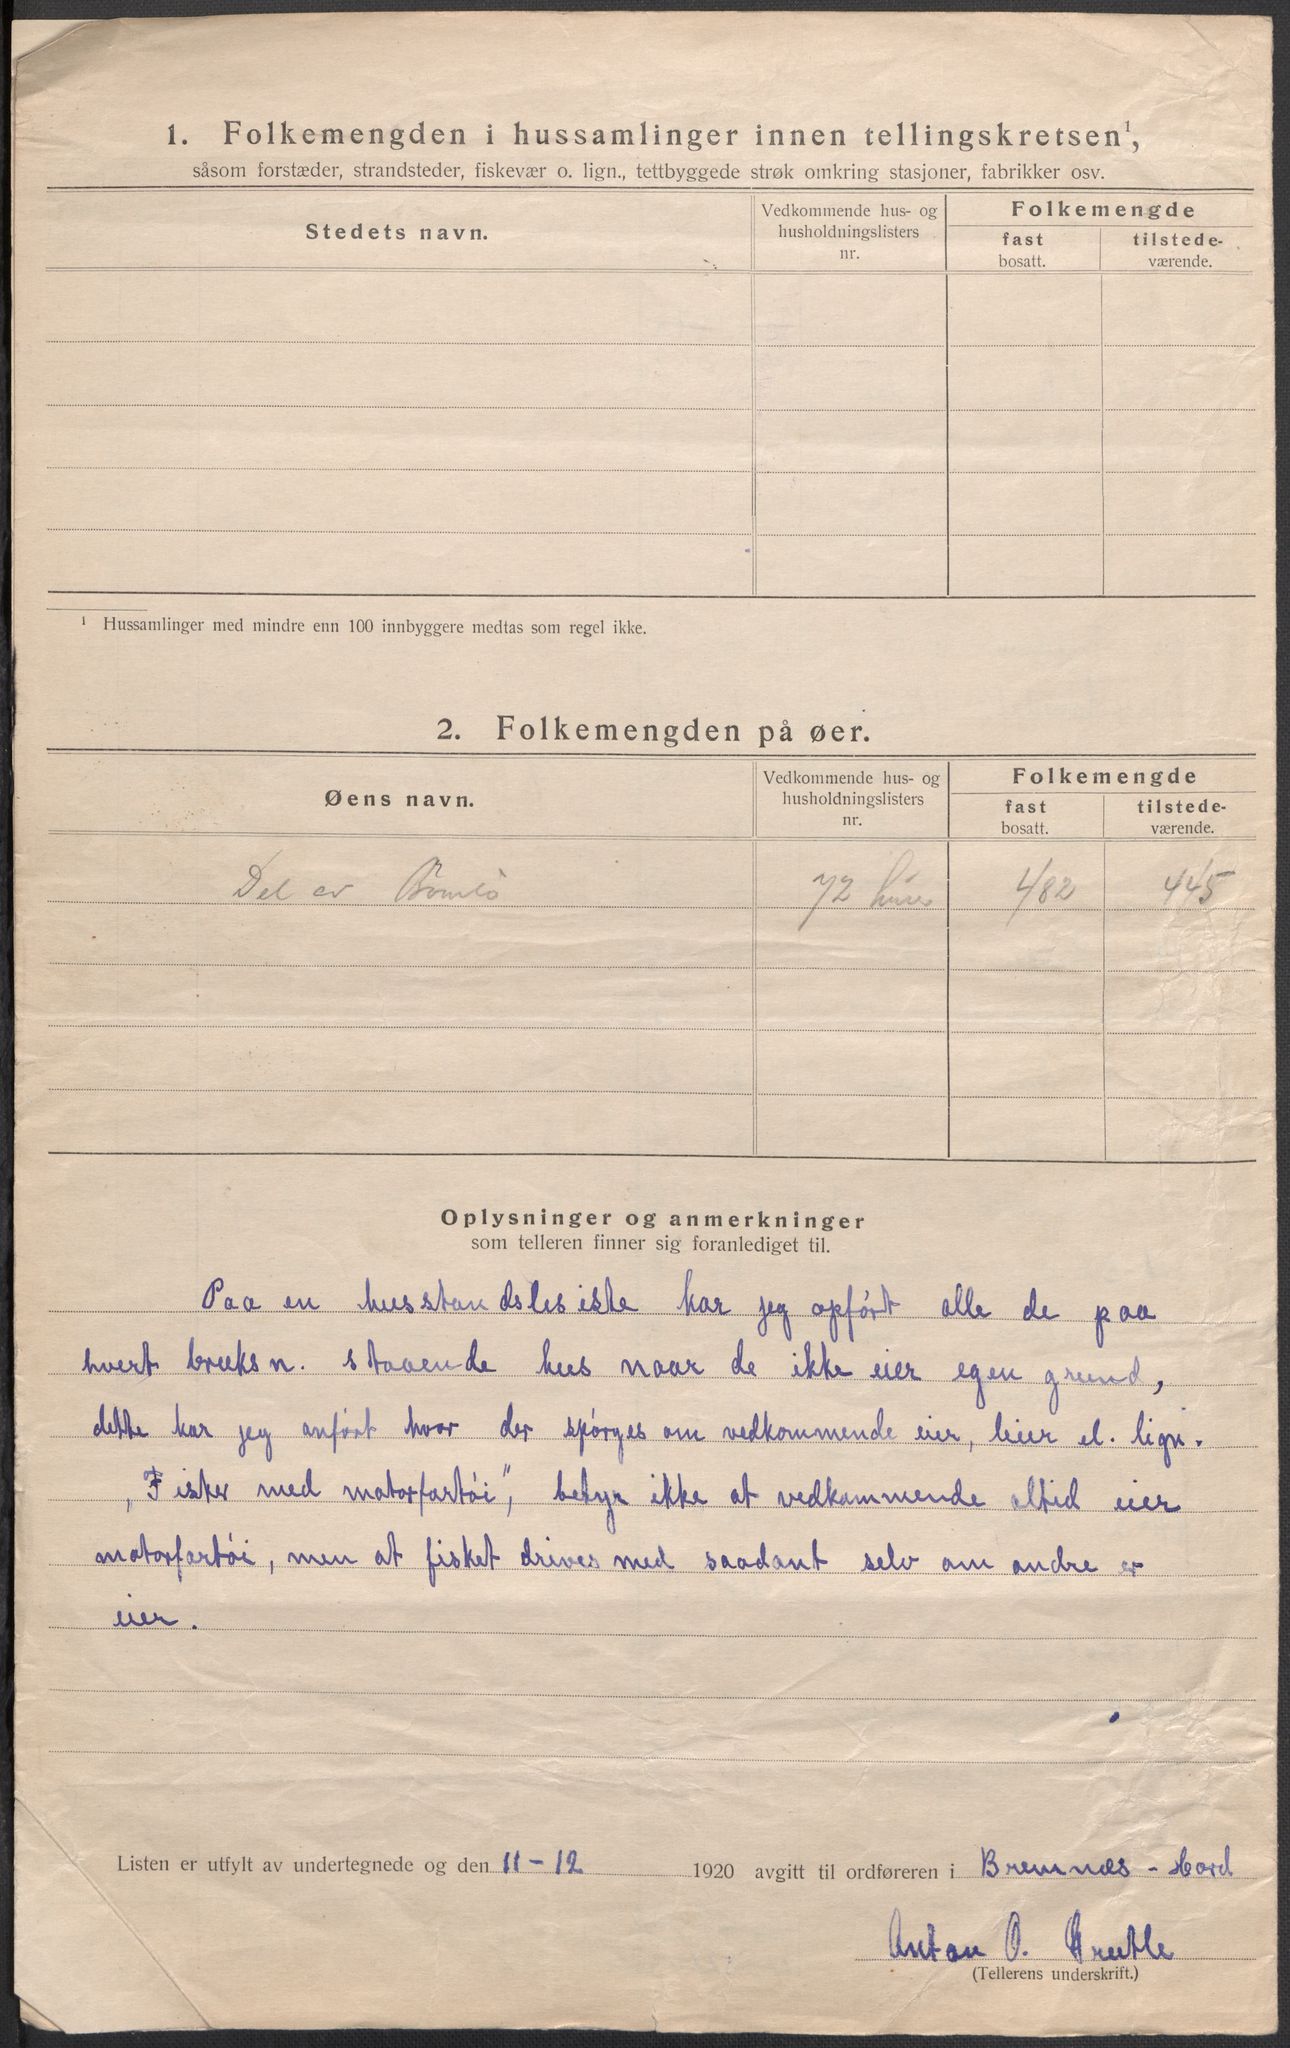 1. Folkemengden i hussamlinger innen tellingskretsen¹,
såsom forstæder, strandsteder, fiskevær o. lign., tettbyggede strøk omkring stasjoner, fabrikker osv.
Stedets navn.
Vedkommende hus- og
husholdningslisters
nr.
Folkemengde
fast
bosatt.
tilstede-
værende.
¹ Hussamlinger med mindre enn 100 innbyggere medtas som regel ikke.
2. Folkemengden på øer.
Øens navn.
Vedkommende hus- og
husholdningslisters
nr.
Folkemengde
fast
bosatt.
tilstede-
værende.
Del av Bømlo 72 482 445
Oplysninger og anmerkninger
som telleren finner sig foranlediget til.
Paa en husstandslesiste har jeg opført alle de paa
hvert bruksn. staaende hus naar de ikke eier egen grund,
dette har jeg anført hvor der spørges om vedkommende eier, leier el. lign.
„Fisker med motorfartøi", betyr ikke at vedkommende altid eier
motorfartøi, men at fisket drives med saadant selv om andre er
eier.
Listen er utfylt av undertegnede og den 11-12 1920 avgitt til ordføreren i Bremnæs - Hord
Anton O. Grutle
(Tellerens underskrift.)